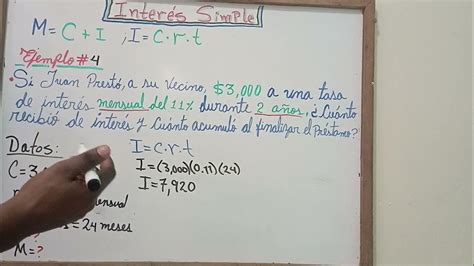 Interés Simple
M = C + I , I = C · r . t
Ejemplo #4
• Si Juan Prestó, a su Vecino, $3,000 a una tasa
de interés mensual del 11% durante 2 años, ¿Cuánto
recibió de interés y Cuánto acumuló al finalizar el Préstamo?
Datos:
I = C . r . t
C = 3,
I = (3,000)(0.11)(24)
I = 7,920
= 24 meses
M = ?